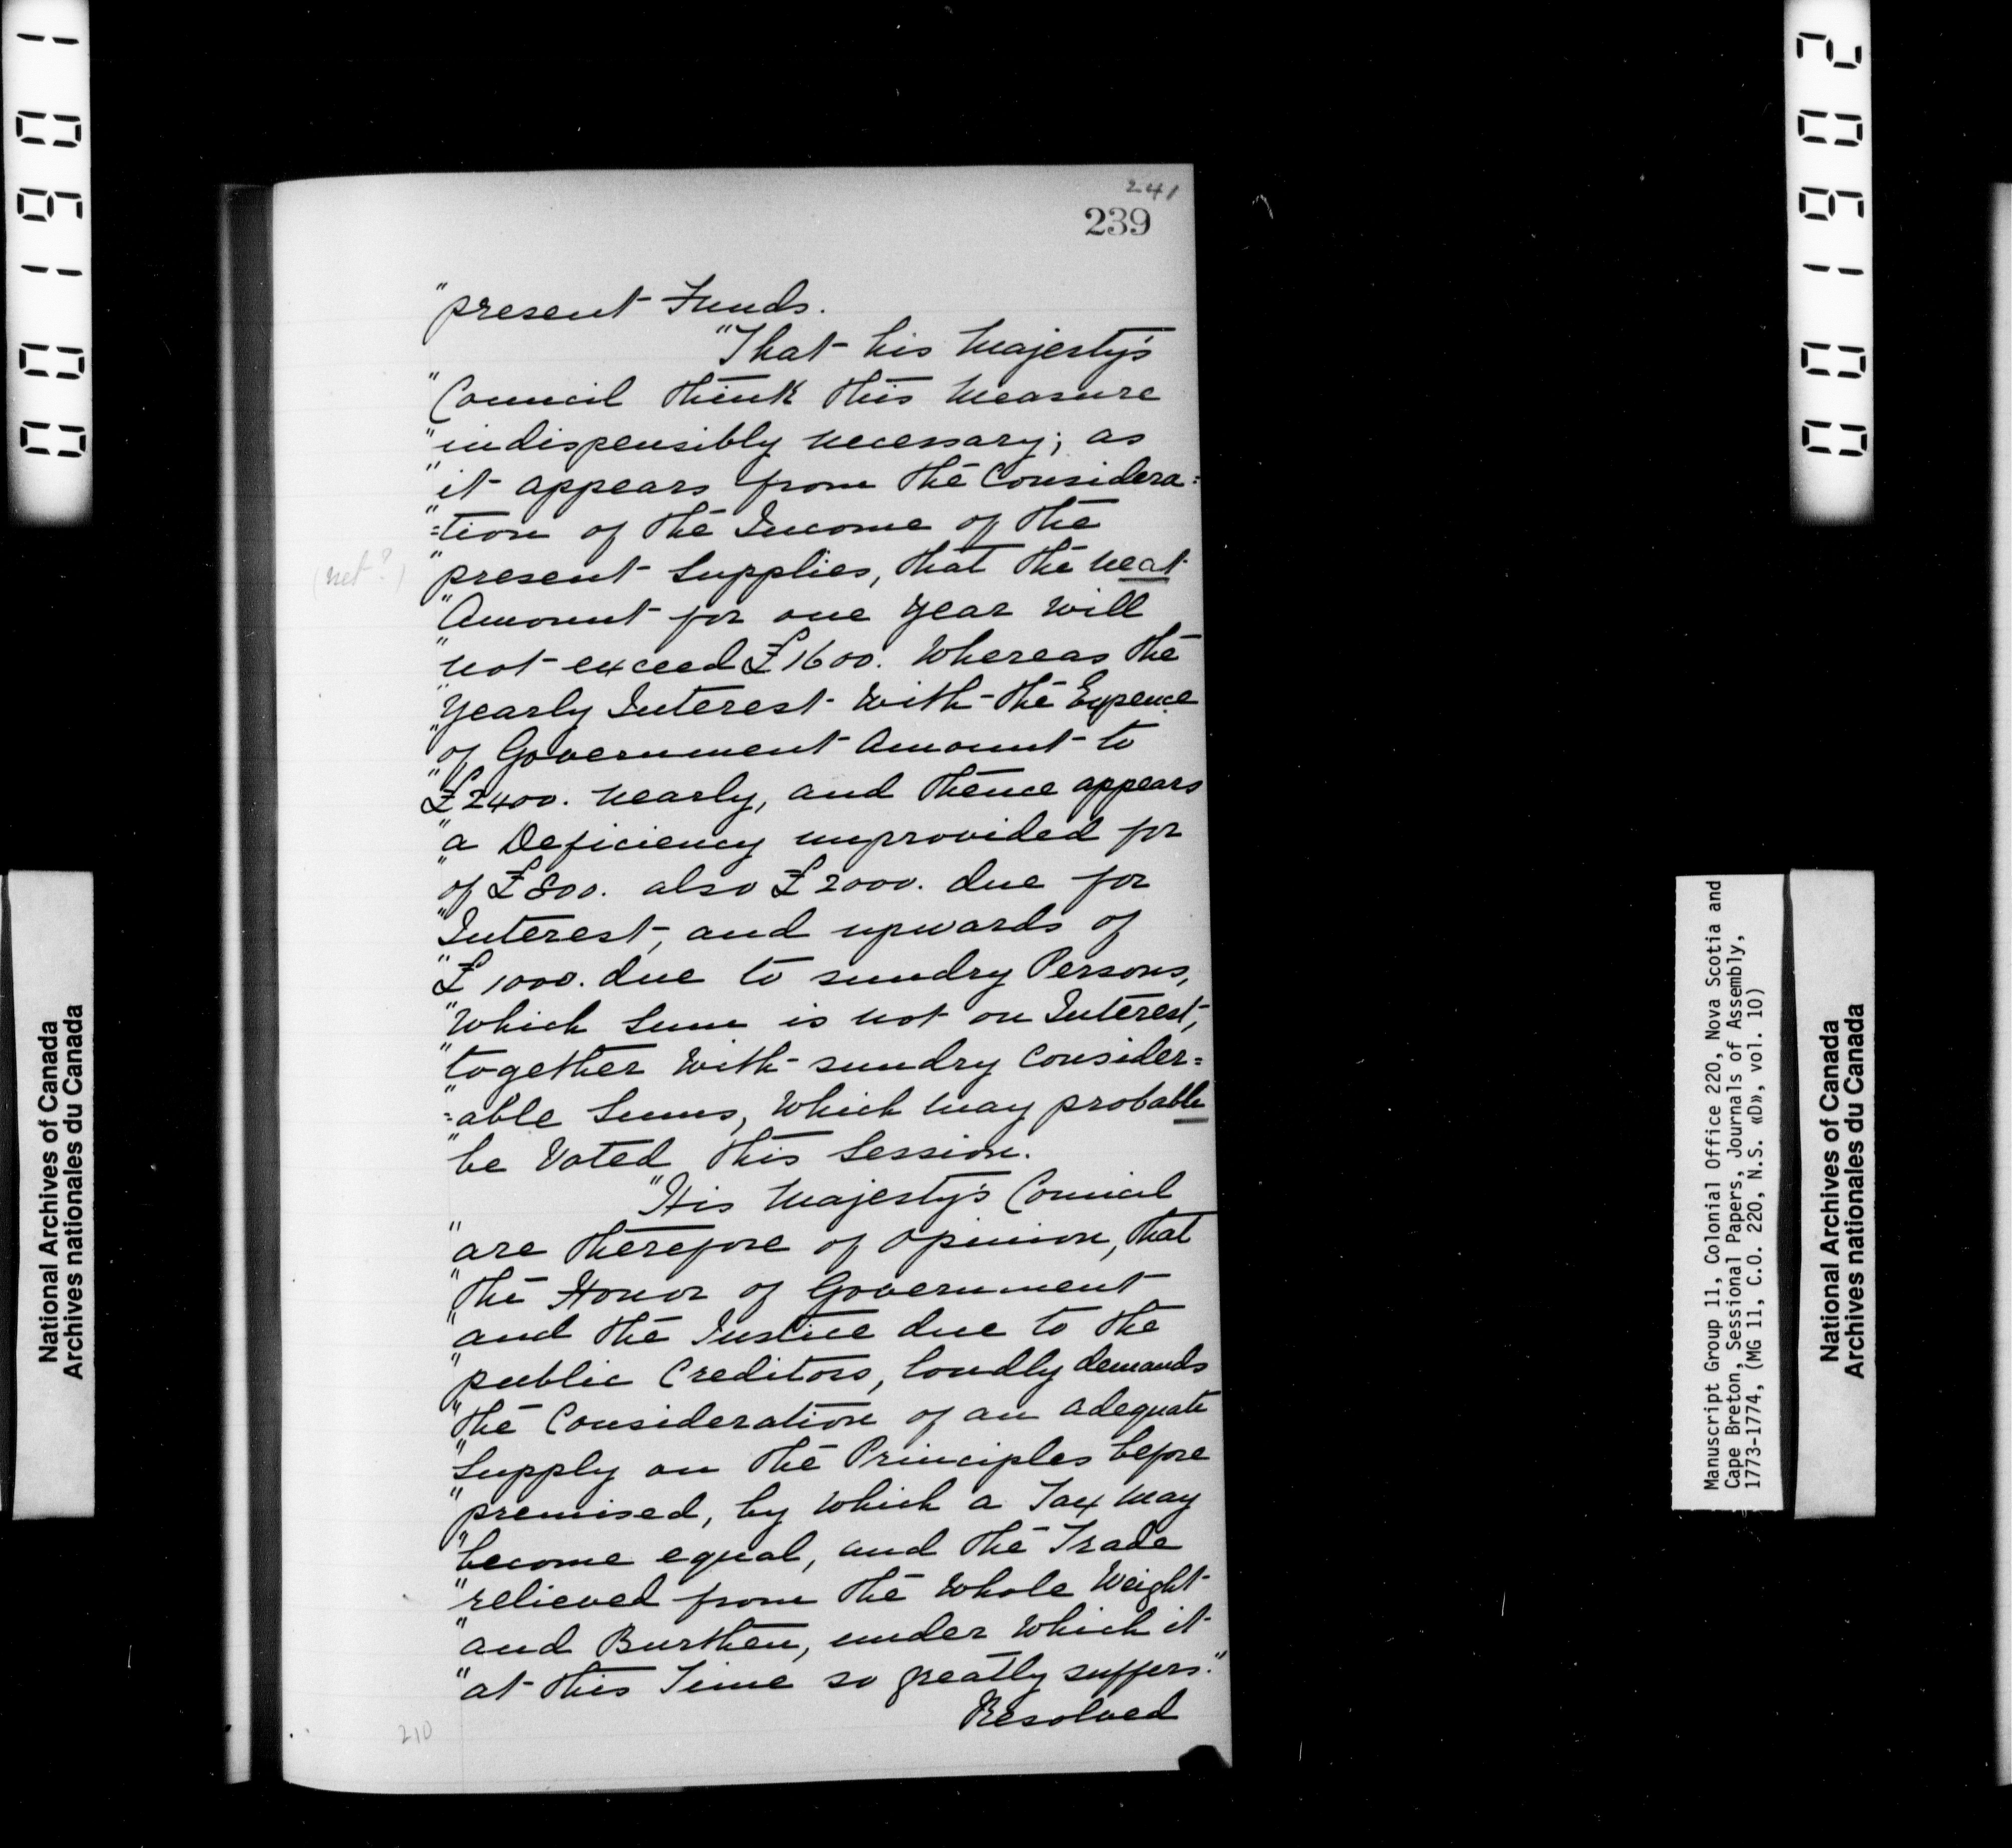 001901
001902
241
239
"present Funds.
"That his Majesty's
"Council think this Measure
"indispensibly necessary; as
"it appears from the Considera=
"=tion of the Income of the
(net?)
"present Supplies, that the neat
"Amount for one Year Will
"not exceed £1600. Whereas the
"Yearly Interest With the Expence
"of Government Amount to
"£2400. nearly, and thence appears
"a Deficiency unprovided for
"of £800. also £2000. due for
"Interest, and upwards of
"£1000. due to sundry Persons,
"Which Sum is not on Interest,
"together With sundry Consider=
"=able Sums, Which may probable
"be Voted this Session.
"His Majesty's Council
"are therefore of Opinion, that
"the Honor of Government
"and the Justice due to the
"public Creditors, loudly demands
"the Consideration of an adequate
"Supply on the Principles before
"premised, by Which a Tax may
"become equal, and the Trade
"relieved from the Whole Weight
"and Burthen, under Which it
"at this Time so greatly suffers."
Resolved
210
National Archives of Canada
Archives nationales du Canada
Manuscript Group 11, Colonial Office 220, Nova Scotia and
Cape Breton, Sessional Papers, Journals of Assembly,
1773-1774, (MG 11, C.O. 220, N.S. «D», vol. 10)
National Archives of Canada
Archives nationales du Canada